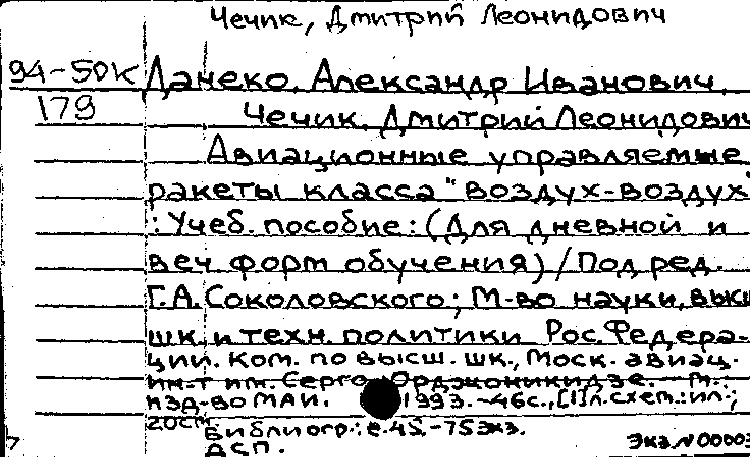 Чечик, Дмитрий Леонидович
94-50К Данеко, Александр Иванович,
179 Чечик, Дмитрий Леонидович
Авиационные управляемые
ракеты класса "воздух-воздух"
: Учеб. пособие: (Для дневной и
веч. форм обучения) / Под ред.
Г.А. Соколовского; М-во науки, высш.
шк. и техн. политики Рос. Федера-
ции. Ком. по высш. шк., Моск. авиац.
ин-т им. Серго Орджоникидзе. - М.:
изд-во МАИ, 1993. -46с., [1]л. схем.: ил.;
20см
Библиогр.: с.45. - 75 экз.
ДСП. Экз. N 00003